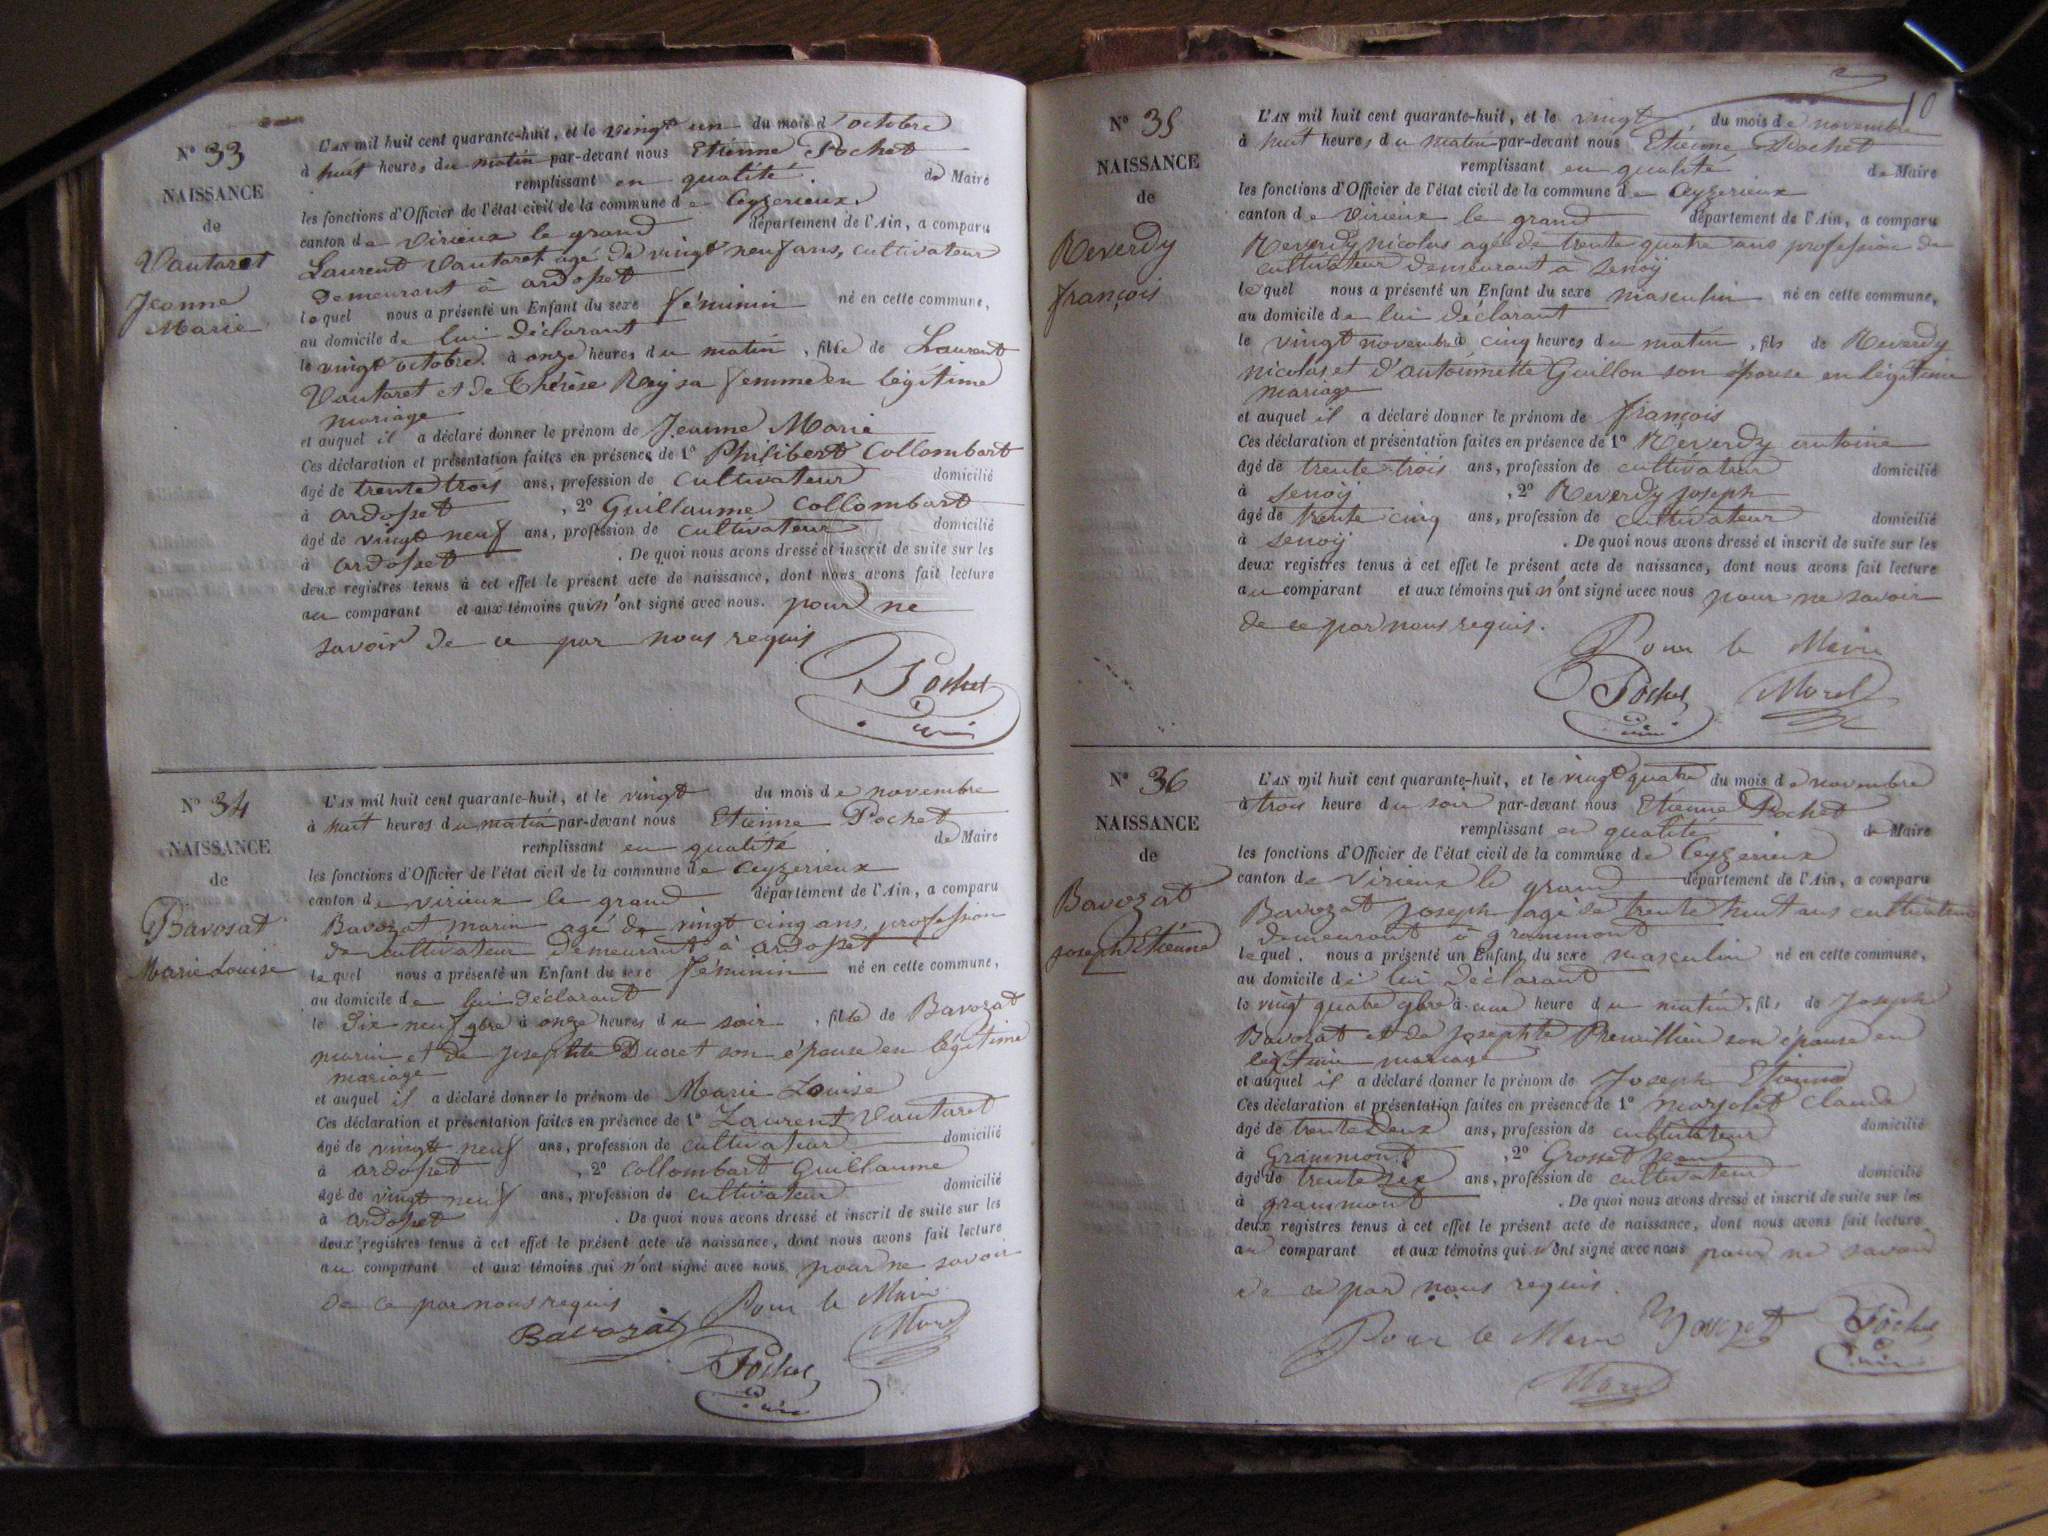 N° 33
NAISSANCE
de
Vautaret
Jeanne
Marie
L'AN mil huit cent quarante-huit, et le vingt un du mois d'octobre
à huit heures du matin par-devant nous Etienne Pochet
remplissant en qualité de Maire
les fonctions d'Officier de l'état civil de la commune de Ceyzerieux
canton de Virieux le grand département de l'Ain, a comparu
Laurent Vautaret agé de vingt neuf ans, cultivateur
demeurant à ardosset
lequel nous a présenté un Enfant du sexe féminin né en cette commune,
au domicile de lui déclarant
le vingt octobre à onze heures du matin, fille de Laurent
Vautaret et de Thérèse Rey sa femme en légitime
mariage
et auquel il a déclaré donner le prénom de Jeanne Marie
Ces déclaration et présentation faites en présence de 1° Philibert Collombart
âgé de trente trois ans, profession de cultivateur domicilié
à ardosset, 2° Guillaume Collombart
âgé de vingt neuf ans, profession de cultivateur domicilié
à ardosset. De quoi nous avons dressé et inscrit de suite sur les
deux registres tenus à cet effet le présent acte de naissance, dont nous avons fait lecture
au comparant et aux témoins qui n'ont signé avec nous. pour ne
savoir de ce par nous requis
Pochet
N° 34
NAISSANCE
de
Bavosat
Marie Louise
L'AN mil huit cent quarante-huit, et le vingt du mois de novembre
à huit heures du matin par-devant nous Etienne Pochet
remplissant en qualité de Maire
les fonctions d'Officier de l'état civil de la commune de Ceyzerieux
canton de virieux le grand département de l'Ain, a comparu
Bavozat marin agé de vingt cinq ans, profession
de cultivateur demeurant à ardosset
lequel nous a présenté un Enfant du sexe féminin né en cette commune,
au domicile de lui déclarant
le dix neuf 9bre à onze heures du soir, fille de Bavozat
marin et de Josephte Ducret son épouse en légitime
mariage
et auquel il a déclaré donner le prénom de Marie Louise
Ces déclaration et présentation faites en présence de 1° Laurent Vautaret
âgé de vingt neuf ans, profession de cultivateur domicilié
à ardosset, 2° Collombart Guillaume
âgé de vingt neuf ans, profession de cultivateur domicilié
à ardosset. De quoi nous avons dressé et inscrit de suite sur les
deux registres tenus à cet effet le présent acte de naissance, dont nous avons fait lecture
au comparant et aux témoins qui n'ont signé avec nous pour ne savoir
de ce par nous requis Pour le Maire
Bavozat Morel
Pochet
10
N° 35
NAISSANCE
de
Reverdy
françois
L'AN mil huit cent quarante-huit, et le vingt du mois de novembre
à huit heures du matin par-devant nous Etienne Pochet
remplissant en qualité de Maire
les fonctions d'Officier de l'état civil de la commune de Ceyzerieux
canton de Virieux le grand département de l'Ain, a comparu
Reverdy nicolas agé de trente quatre ans profession de
cultivateur demeurant à Senoÿ
lequel nous a présenté un Enfant du sexe masculin né en cette commune,
au domicile de lui déclarant
le vingt novembre à cinq heures du matin, fils de Reverdy
nicolas et d'antoinette Guillon son épouse en légitime
mariage
et auquel il a déclaré donner le prénom de françois
Ces déclaration et présentation faites en présence de 1° Reverdy antoine
âgé de trente-trois ans, profession de cultivateur domicilié
à Senoÿ, 2° Reverdy joseph
âgé de trente cinq ans, profession de cultivateur domicilié
à Senoÿ. De quoi nous avons dressé et inscrit de suite sur les
deux registres tenus à cet effet le présent acte de naissance, dont nous avons fait lecture
au comparant et aux témoins qui n'ont signé avec nous pour ne savoir
de ce par nous requis.
Pour le Maire
Pochet Morel
N° 36
NAISSANCE
de
Bavozat
Joseph Etienne
L'AN mil huit cent quarante-huit, et le vingt quatre du mois de novembre
à trois heure du soir par-devant nous Etienne Pochet
remplissant en qualité de Maire
les fonctions d'Officier de l'état civil de la commune de Ceyzerieux
canton de Virieux le grand département de l'Ain, a comparu
Bavozat Joseph agé de trente huit ans cultivateur
demeurant à grammont
lequel nous a présenté un Enfant du sexe masculin né en cette commune,
au domicile de lui déclarant
le vingt quatre 9bre à une heure du matin, fils de Joseph
Bavozat et de Josephte son épouse en
légitime mariage
et auquel il a déclaré donner le prénom de Joseph Etienne
Ces déclaration et présentation faites en présence de 1° Marjolet Claude
âgé de trente deux ans, profession de cultivateur domicilié
à Grammont, 2° Grosset Jean
âgé de trente six ans, profession de cultivateur domicilié
à grammont. De quoi nous avons dressé et inscrit de suite sur les
deux registres tenus à cet effet le présent acte de naissance, dont nous avons fait lecture
au comparant et aux témoins qui n'ont signé avec nous pour ne savoir
de ce par nous requis.
Pour le Maire Pochet
Morel